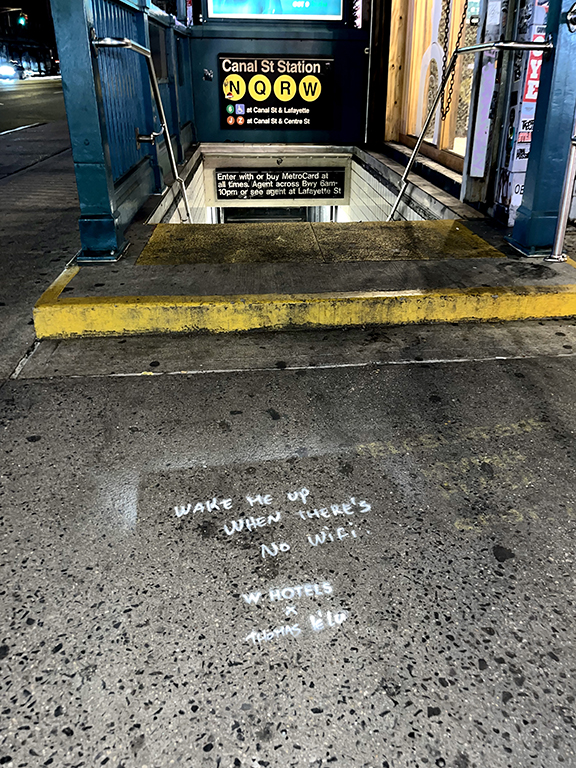 Canal St Station
N Q R W
6 at Canal St & Lafayette
J Z at Canal St & Centre St
Enter with or buy MetroCard at
all times. Agent across Bwy 6am-
10pm or see agent at Lafayette St
WAKE ME UP
WHEN THERE'S
NO WiFi
W HOTELS
X
THOMAS